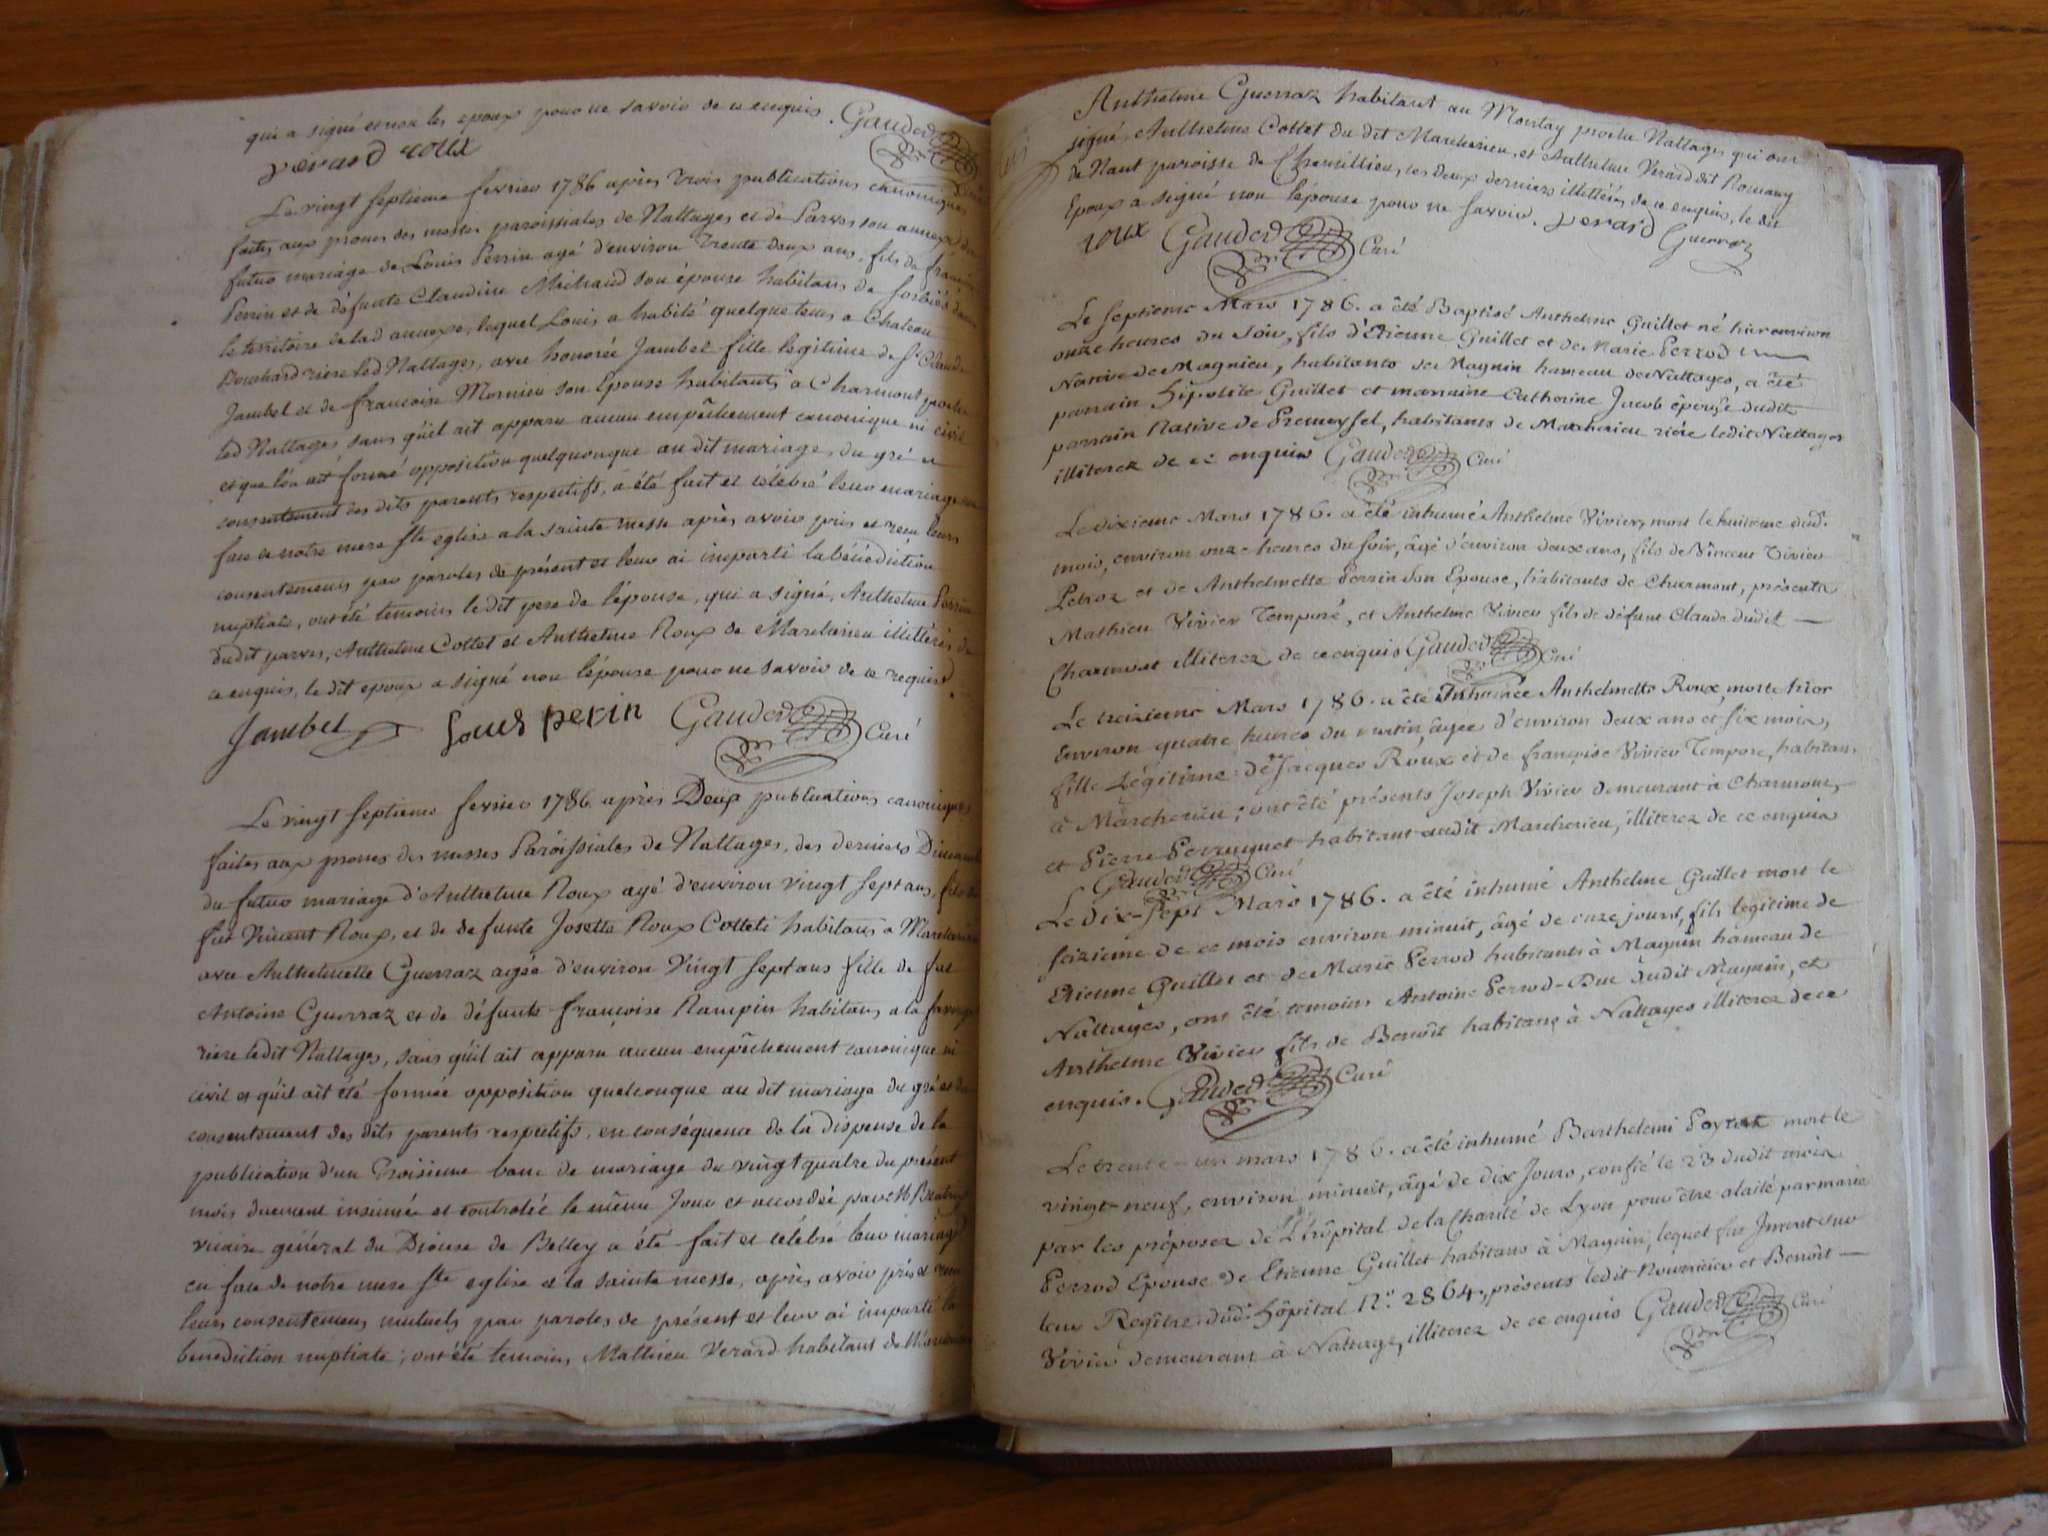 qui a signé et non les epoux pour ne savoir de ce enquis. Gauded
verard roux
Le vingt septieme fevrier 1786 après trois publications canoniques
faites aux prones des messes paroissiales de Nattages et de Parves son annexe du
futur mariage de Louis Perrin agé d'environ trente deux ans, fils de françois
Perrin et de défunte Claudine Michaud son épouse habitans de
le territoire de lad annexe, lequel Louis a habité quelque tems a Chateau
Bouchard riere led Nattages, avec honorée Jambel fille legitime de Sr Claude
Jambel et de françoise Mornieu son Epouse habitants a Charmont
led Nattages, sans qu'il ait apparu aucun empêchement canonique ni civil
et que l'on ait formé opposition quelquonque au dit mariage, du gré et
consentement des dits parents respectifs, a été fait et célébré leur mariage en
face de notre mere Ste eglise a la sainte messe après avoir pris et recu leurs
consentemens par paroles de présent et leur ai imparti la bénédiction
nuptiale, ont été temoins le dit pere de l'épouse, qui a signé, Anthelme Perrin
dudit parves, Anthelme Cottet et Anthelme Roux de Marcherieu illettérés de
ce enquis, le dit epoux a signé non l'épouse pour ne savoir de ce requise.
Jambel Louis perin Gauded Curé
Le vingt septieme fevrier 1786 après Deux publications canoniques
faites aux prones des messes Paroissiales de Nattages, des derniers Dimanches
du futur mariage d'Anthelme Roux agé d'environ vingt sept ans, fils de
fut Vincent Roux, et de defunte Josette Roux Cotteti habitans a Marcherieu
avec Anthelmette Guerraz agée d'environ Vingt sept ans fille de fut
Antoine Guerraz et de défunte françoise Rampin habitans a la
riere ledit Nattages, sans qu'il ait apparu aucun empêchement canonique ni
civil et qu'il ait été formée opposition quelconque au dit mariage du gré et du
consentement des dits parents respectifs, en conséquence de la dispense de la
publication d'un Troisieme banc de mariage du vingt quatre du présent
mois duement insinuée et controlée le même Jour et accordée par Mr
vicaire général du Diocese de Belley a été fait et célébré leur mariage
en face de notre mere Ste eglise a la sainte messe, après avoir pris et recu
leurs consentemens mutuels par paroles de présent et leur ai imparti la
benediction nuptiale; ont été temoins, Mathieu Verard habitant de
Anthelme Guerraz habitant au Montay proche Nattages qui ont
signé, Anthelme Cottet du dit Marcherieu, et Anthelme Verard dit Romany
de Nant paroisse de Chemillieu, les deux derniers illettérés de ce enquis, le dit
Epoux a signé non l'épouse pour ne savoir. verard
roux Gauded Curé Guerraz
Le septieme Mars 1786. a été Baptisé Anthelme Guillet né hier environ
onze heures du soir, fils d'Etienne Guillet et de Marie Perrod
Native de Magnieu, habitants de Magnin hameau de Nattages, a été
parrain Hipolite Guillet et marraine Catherine Jacob épouse dudit
parrain Native de Premeyssel, habitants de Marcherieu riére ledit Nattages
illiterez de ce enquis Gauded Curé
Le dixieme Mars 1786. a été inhumé Anthelme Vivier, mort le huitieme dud.
mois, environ onze heures du soir, âgé d'environ deux ans, fils de Vincent Vivier
Petroz et de Anthelmette Perrin son Epouse, habitants de Charmont, présents
Mathieu Vivier Temporé, et Anthelme Vivier fils de défunt Claude dudit
Charmont illiterez de ce enquis Gauded Curé
Le treizieme Mars 1786. a été Inhumée Anthelmette Roux, morte hier
Environ quatre heures du matin, âgée d'environ deux ans et six mois,
fille Légitime de Jacques Roux et de françoise Vivier Tempore, habitans
à Marcherieu; ont été présents Joseph Vivier demeurant à Charmont,
et Pierre Perruquet habitant audit Marcherieu, illiterez de ce enquis
Gauded Curé
Le Dix-sept Mars 1786. a été inhumé Anthelme Guillet mort le
seizieme de ce mois environ minuit, âgé de onze jours, fils legitime de
Etienne Guillet et de Marie Perrod habitants à Magnin hameau de
Nattages, ont été temoins Antoine Perrod-Duc dudit Magnin, et
Anthelme Vivier fils de Benoît habitans à Nattages illiterez de ce
enquis. Gauded Curé
Le trente-un mars 1786. a été inhumé Barthelemi mort le
vingt-neuf, environ minuit, âgé de dix Jours, confié le 23 dudit mois
par les préposez de L'hôpital de la Charité de Lyon pour être alaité par marie
Perrod Epouse de Etienne Guillet habitans à Magnin, lequel fut Inscrit sur
leur Regître dud. hôpital N.º 2864, présents ledit Nourricier et Benoît
Vivier demeurant à Nattage, illiterez de ce enquis Gauded Curé